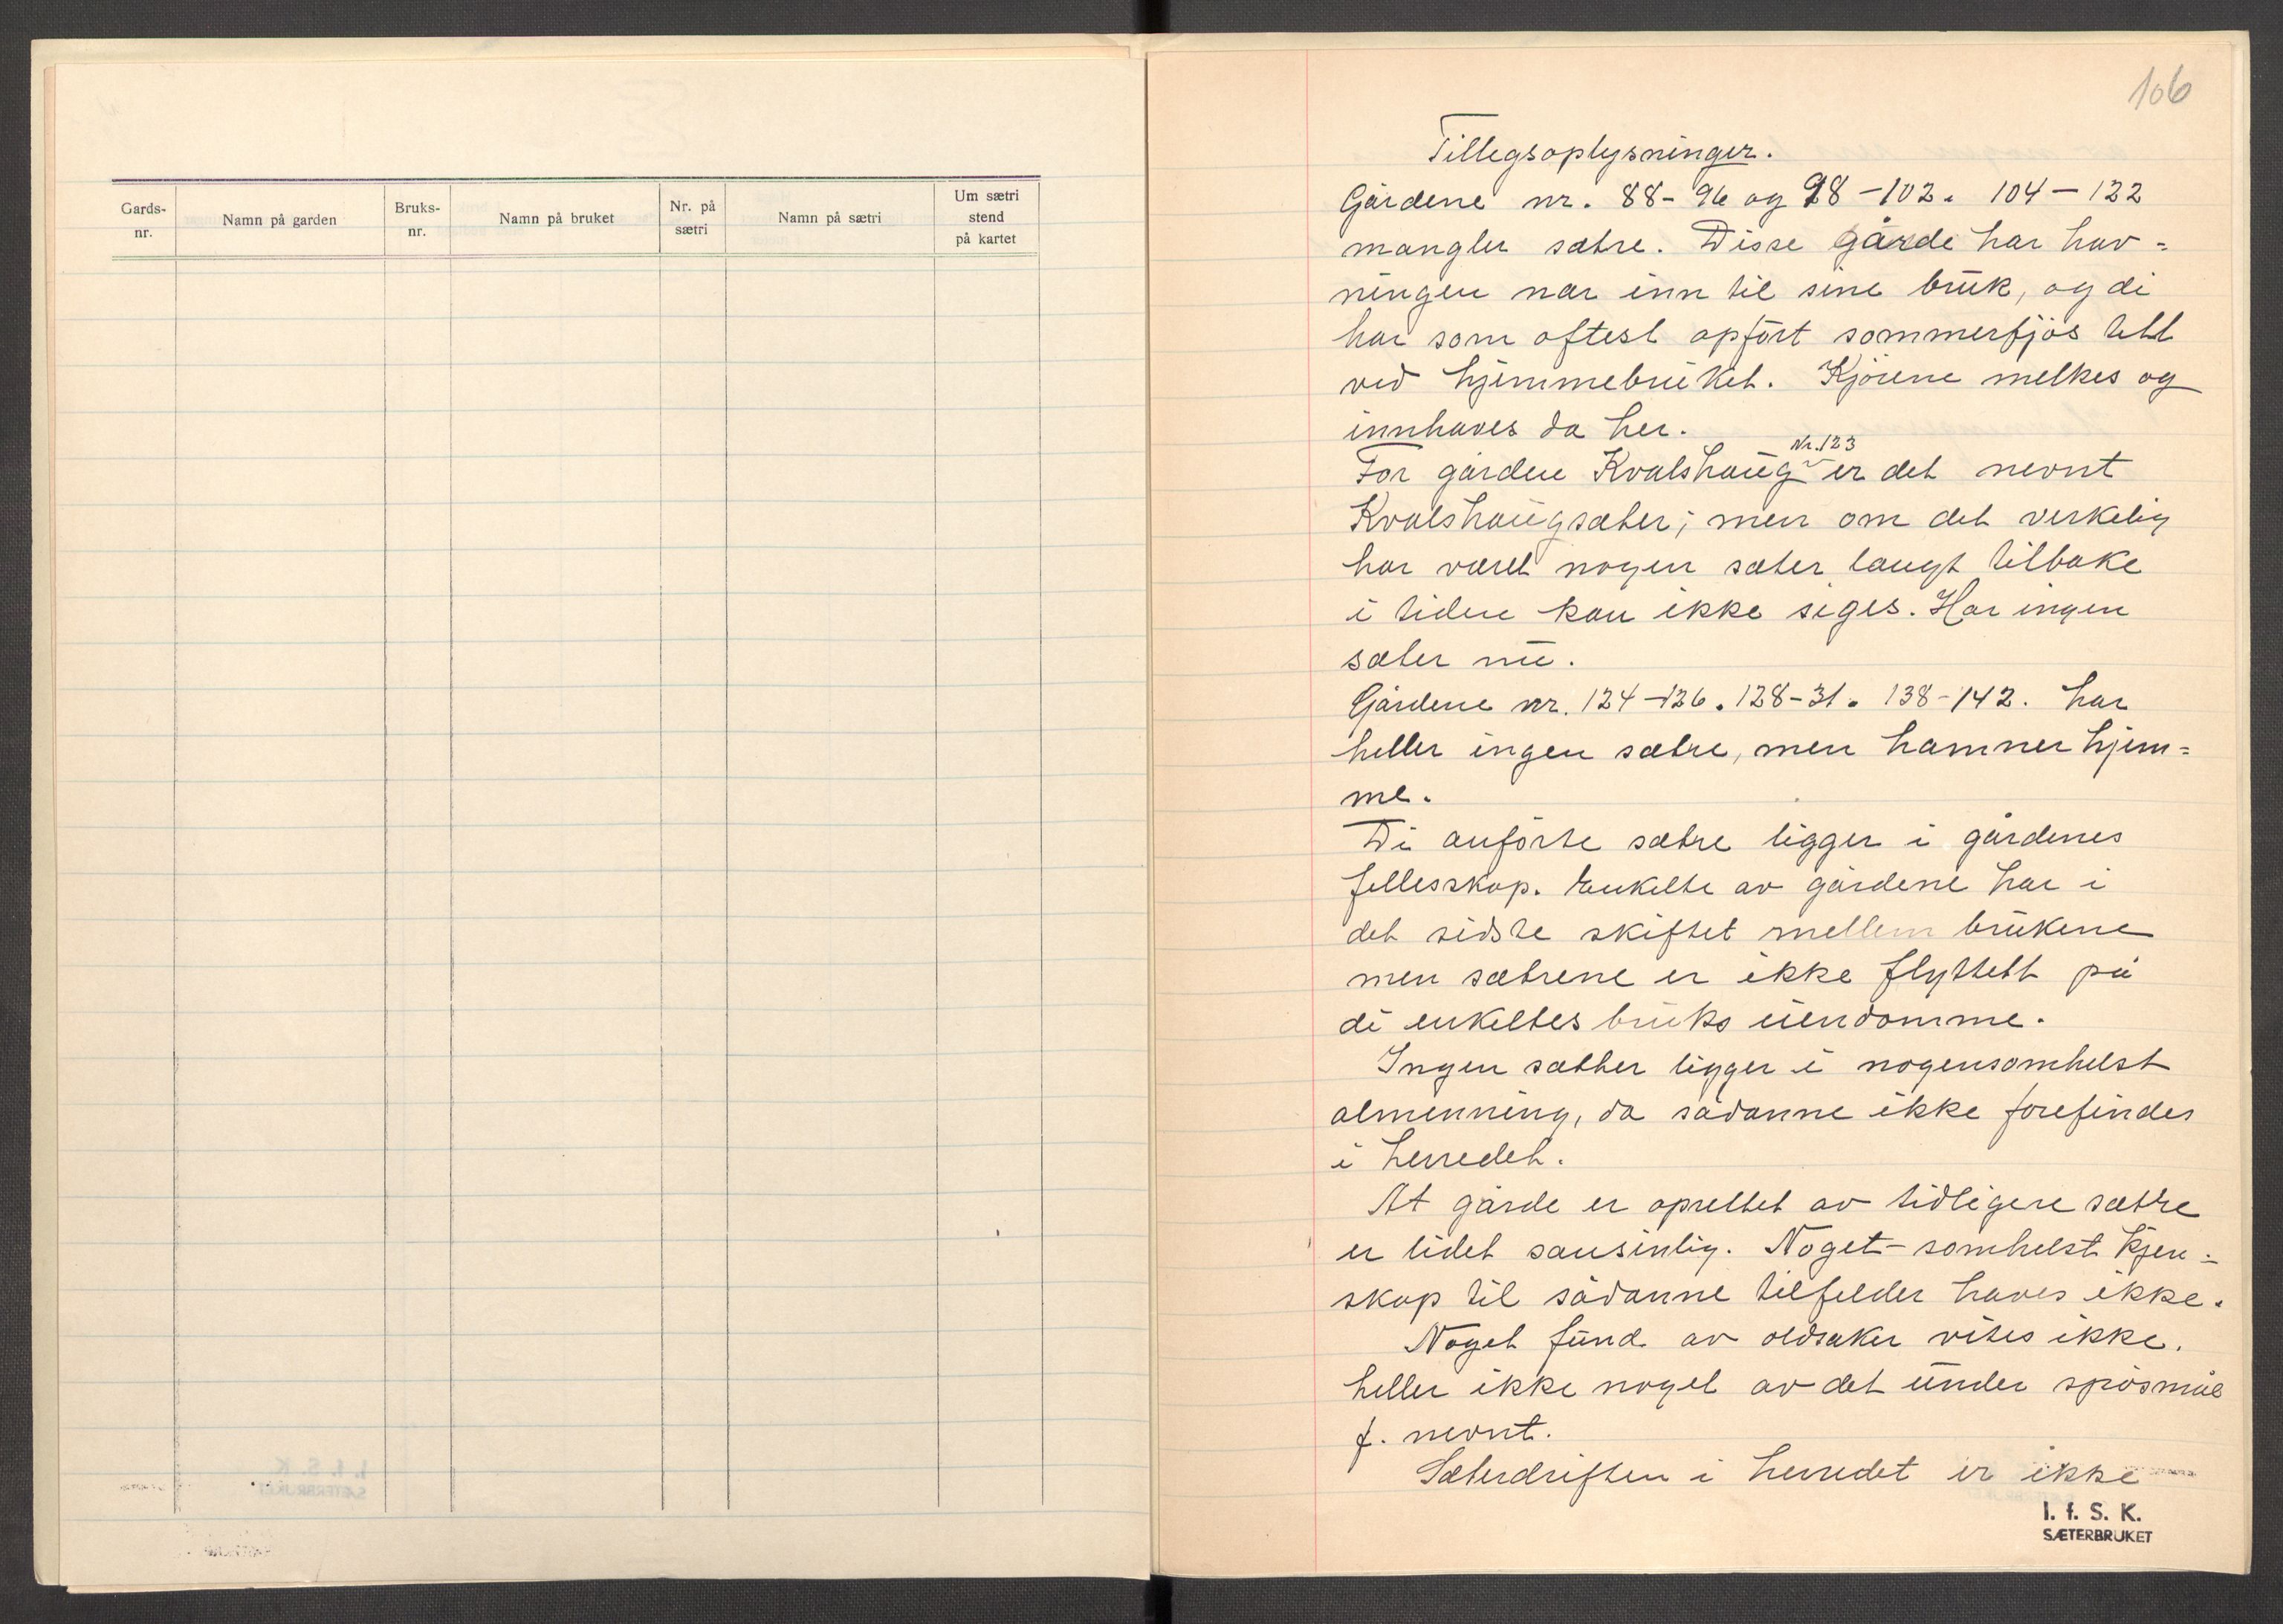 Gards-
nr.
Namn på garden
Bruks-
nr.
Namn på bruket
Nr. på
sætri
Namn på sætri
Um sætri
stend
på kartet
106
Tillegsoplysninger.
Gårdene nr. 88-96 og 98-102. 104-122
mangler sætre. Disse gårde har hav=
ningen nær inn til sine bruk, og di
har som oftest opført sommerfjøs tett
ved hjemmebruket. Kjørene melkes og
innhaves da her.
For gården Kvalshaug Nr. 123 er det nevnt
Kvalshaugsæter; men om det verkelig
har været nogen sæter langt tilbake
i tiden kan ikke siges. Har ingen
sæter nu.
Gårdene nr. 124-126. 128-31. 138-142. har
heller ingen sætre, men hamner hjem=
me.
Di anførte sætre ligger i gårdenes
fellesskap. Enkelte av gårdene har i
det sidste skiftet mellem brukene
men sætrene er ikke flyttett på
di enkeltes bruks eiendomme.
Ingen sætter ligger i nogensomhelst
almenning, da sådanne ikke forefindes
i herredet.
At gårde er oprettet av tidligere sætre
er lidet sansinlig. Noget-somhelst kjen=
skap til sådanne tilfelder haves ikke.
Noget fund av oldsaker vites ikke.
heller ikke noget av det under spøsmål
f. nevnt.
Sæterdriften i herredet er ikke
I. f. S. K.
SÆTERBRUKET